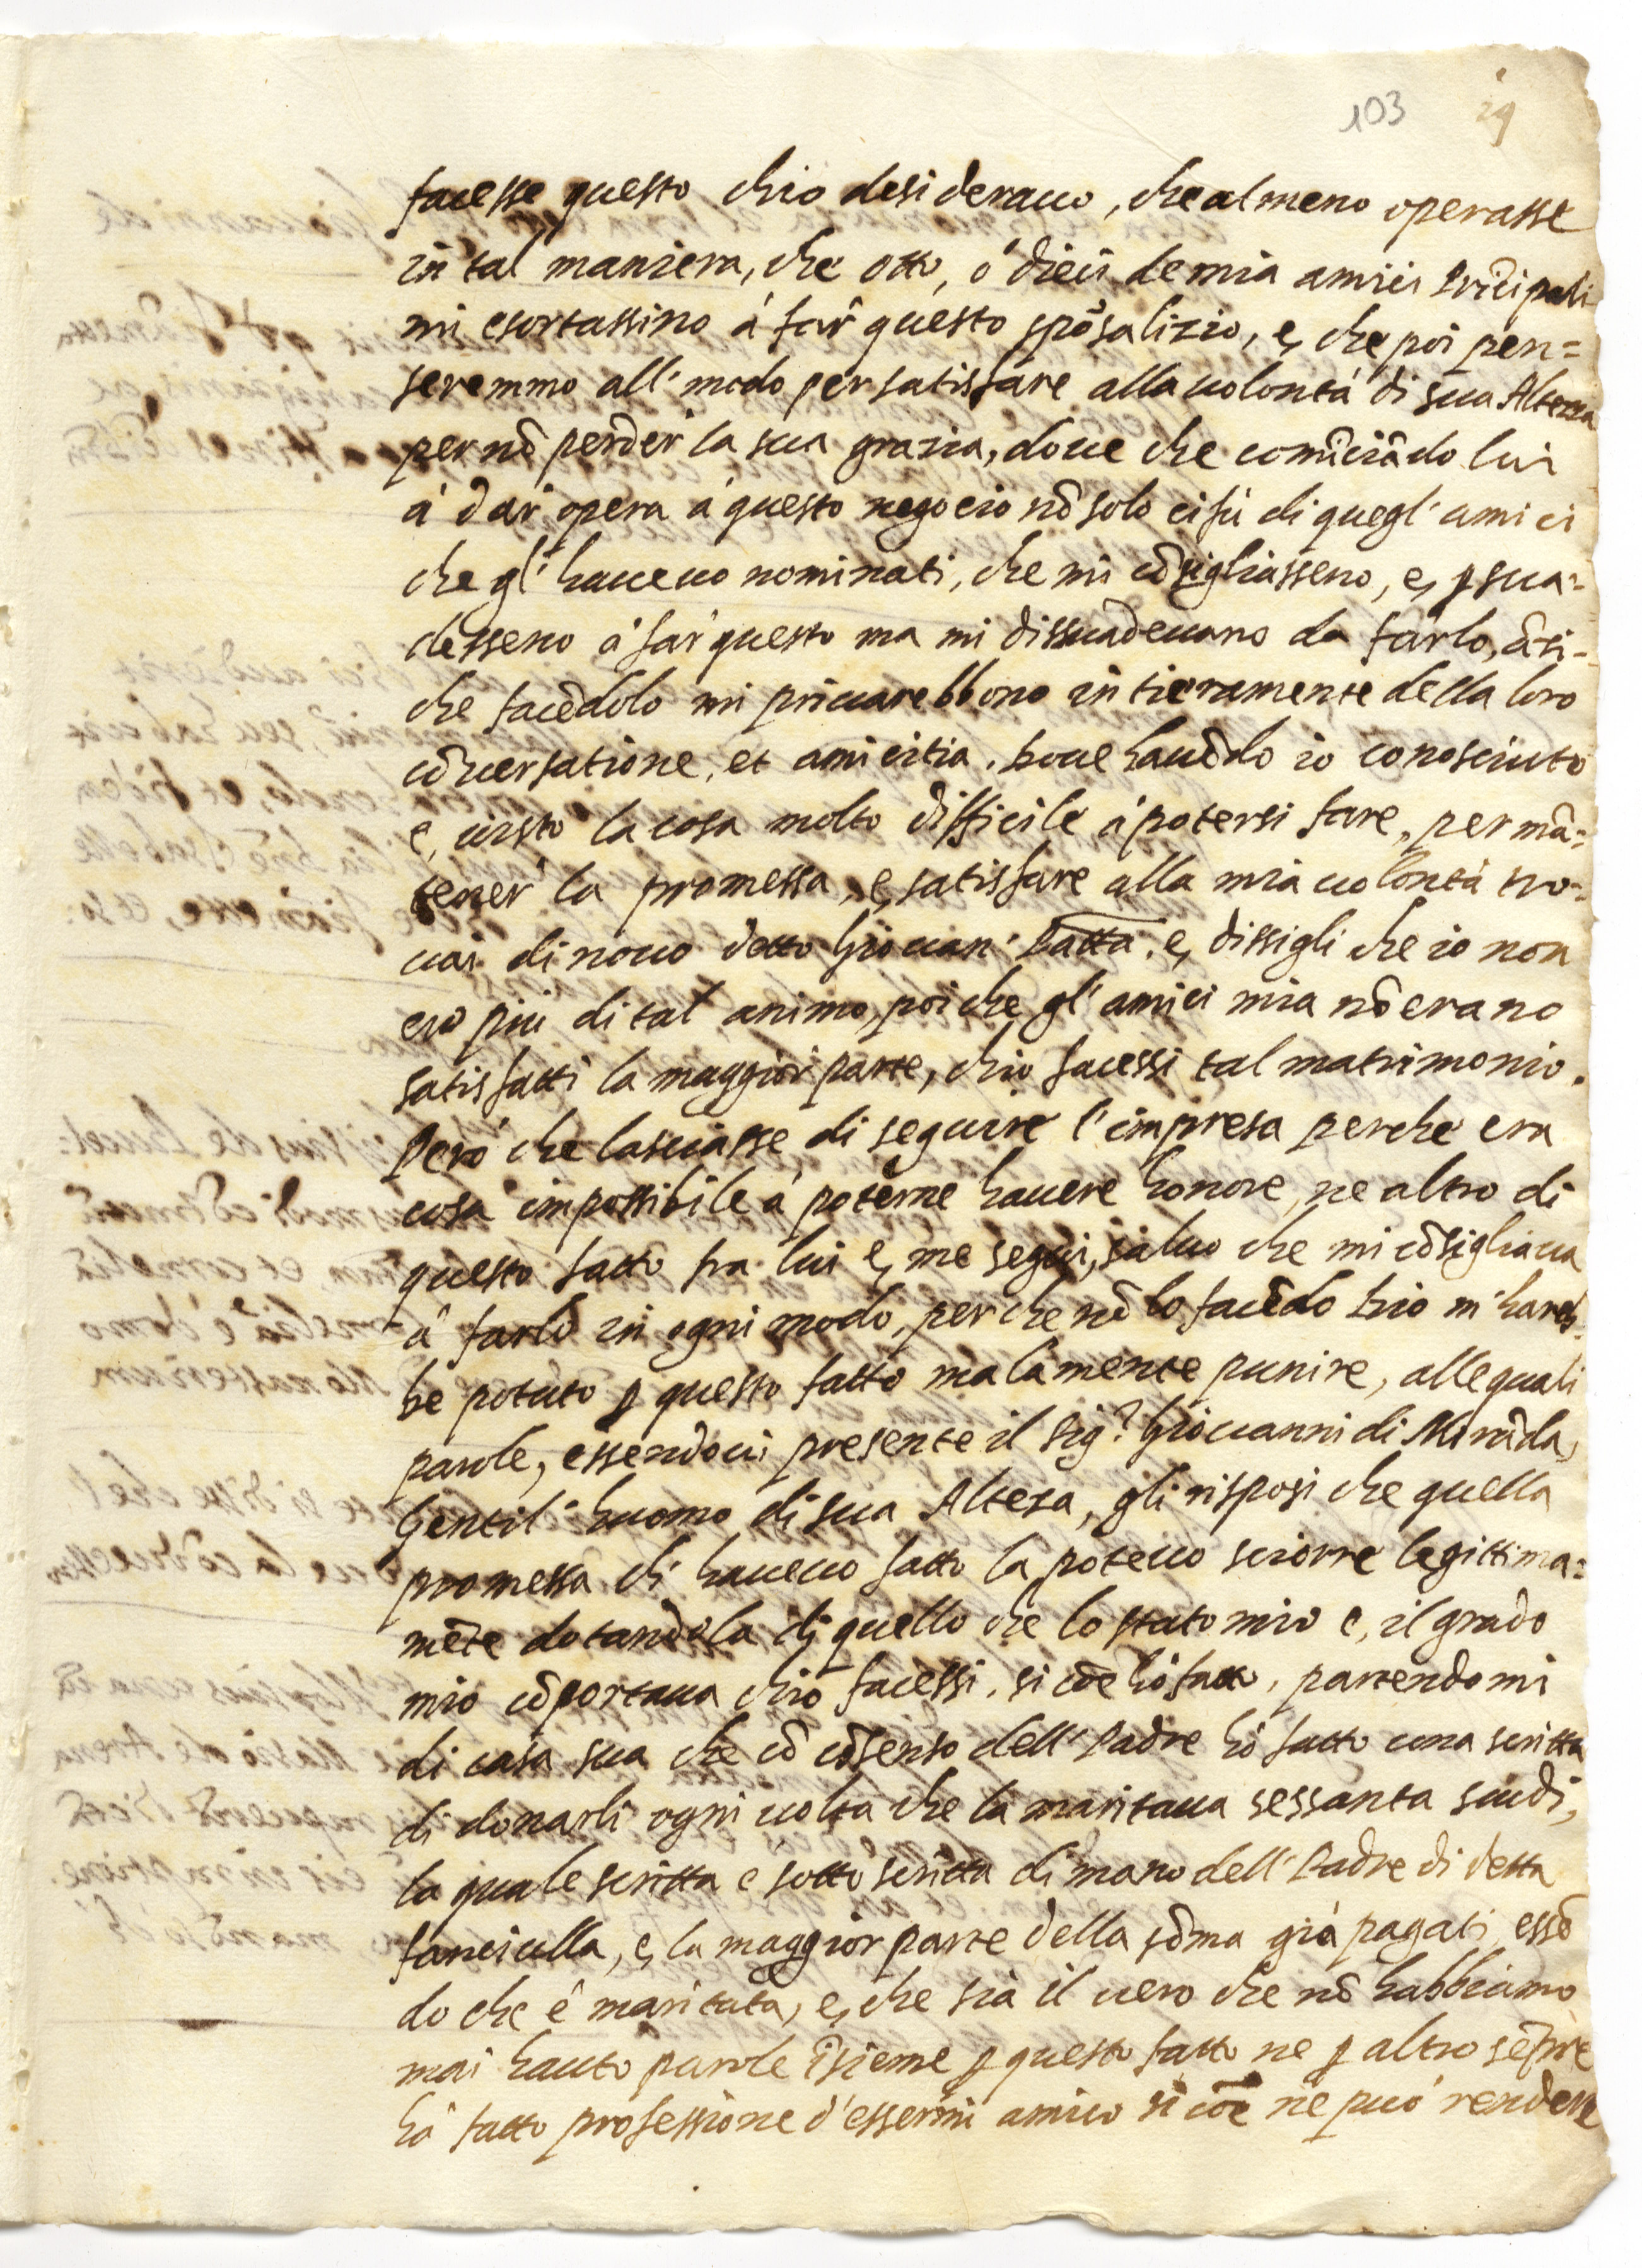 103 19
facesse questo ch'io desiderauo, che al meno operasse
in tal maniera, che otto, ò dieci de mia amici Prĩcipali
mi esortassino à far questo sposalizio, e, che poi pen=
seremmo all'modo per satisfare alla uolontà di sua Altezza
per nõ perder la sua grazia, doue che comĩciãdo lui
à dar opera à questo negocio nõ solo ci fù di quegl'amici
che gl'haueuo nominati, che mi cõsigliasseno, e, ꝑsua=
desseno à far questo ma mi dissuadeuano da farlo, ãti-
che facẽdolo mi priuarebbono intieramente della loro
cõuersatione, et amicitia. Doue hauẽdo io conosciuto
e, uisto la cosa molto difficile à potersi fare, per mã=
tener la promessa, e, satisfare alla mia uolontà tro=
uai di nouo detto Giouan' Batta, e, dissigli che io non
ero più di tal animo, poi che gl'amici mia nõ erano
satisfatti la maggior parte, ch'io facessi tal matrimonio.
Però che lasciasse di seguire l'impresa perche era
cosa impossibile à poterne hauere honore, ne altro di
questo fatto fra lui e, me seguì, saluo che mi cõsigliaua
à farlo in ogni modo, perche nõ lo facẽdo Dio m'hareb=
be potuto ꝑ questo fatto malamente punire, alle quali
parole, essendoui presente il Sig.r Giouanni di Mirãda,
Gentil'huomo di sua Alteza, gli risposi che quella
promessa ch'haueuo fatto la poteuo sciorre legittima=
mẽte dotandola di quello che lo stato mio e, il grado
mio cõportaua ch'io facessi, si cõe hò fatto, partendomi
di casa sua che cõ cõsenso dell'Padre hò fatto una scritta
di donarli ogni uolta che la maritaua sessanta scudi,
la quale scritta è sotto scritta di mano dell'Padre di detta
fanciulla, e, la maggior parte della sõma già pagati, essẽ
do che è maritata, e, che sia il uero che nõ habbiamo
mai hauto parole ĩsieme ꝑ questo fatto ne ꝑ altro sẽpre
hà fatto professione d'essermi amico si cõe ne può rendere